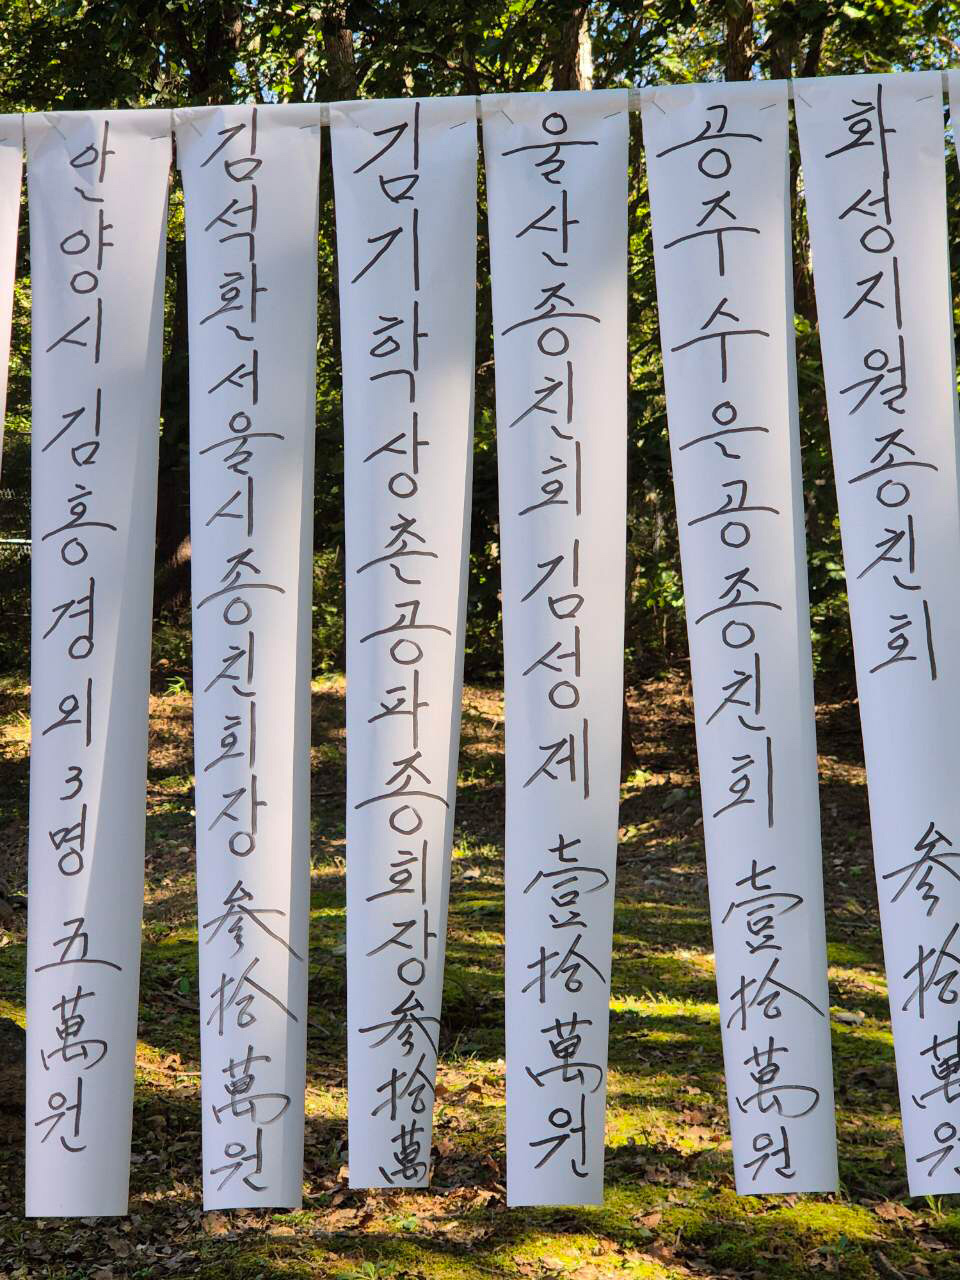 안양시 김홍경 외 3명 五萬원
김석환 서울시종친회장 參拾萬원
김기학 상촌공파종회장 參拾萬
울산종친회 김성제 壹拾萬원
공주수은공종친회 壹拾萬원
화성지월종친회 參拾萬원